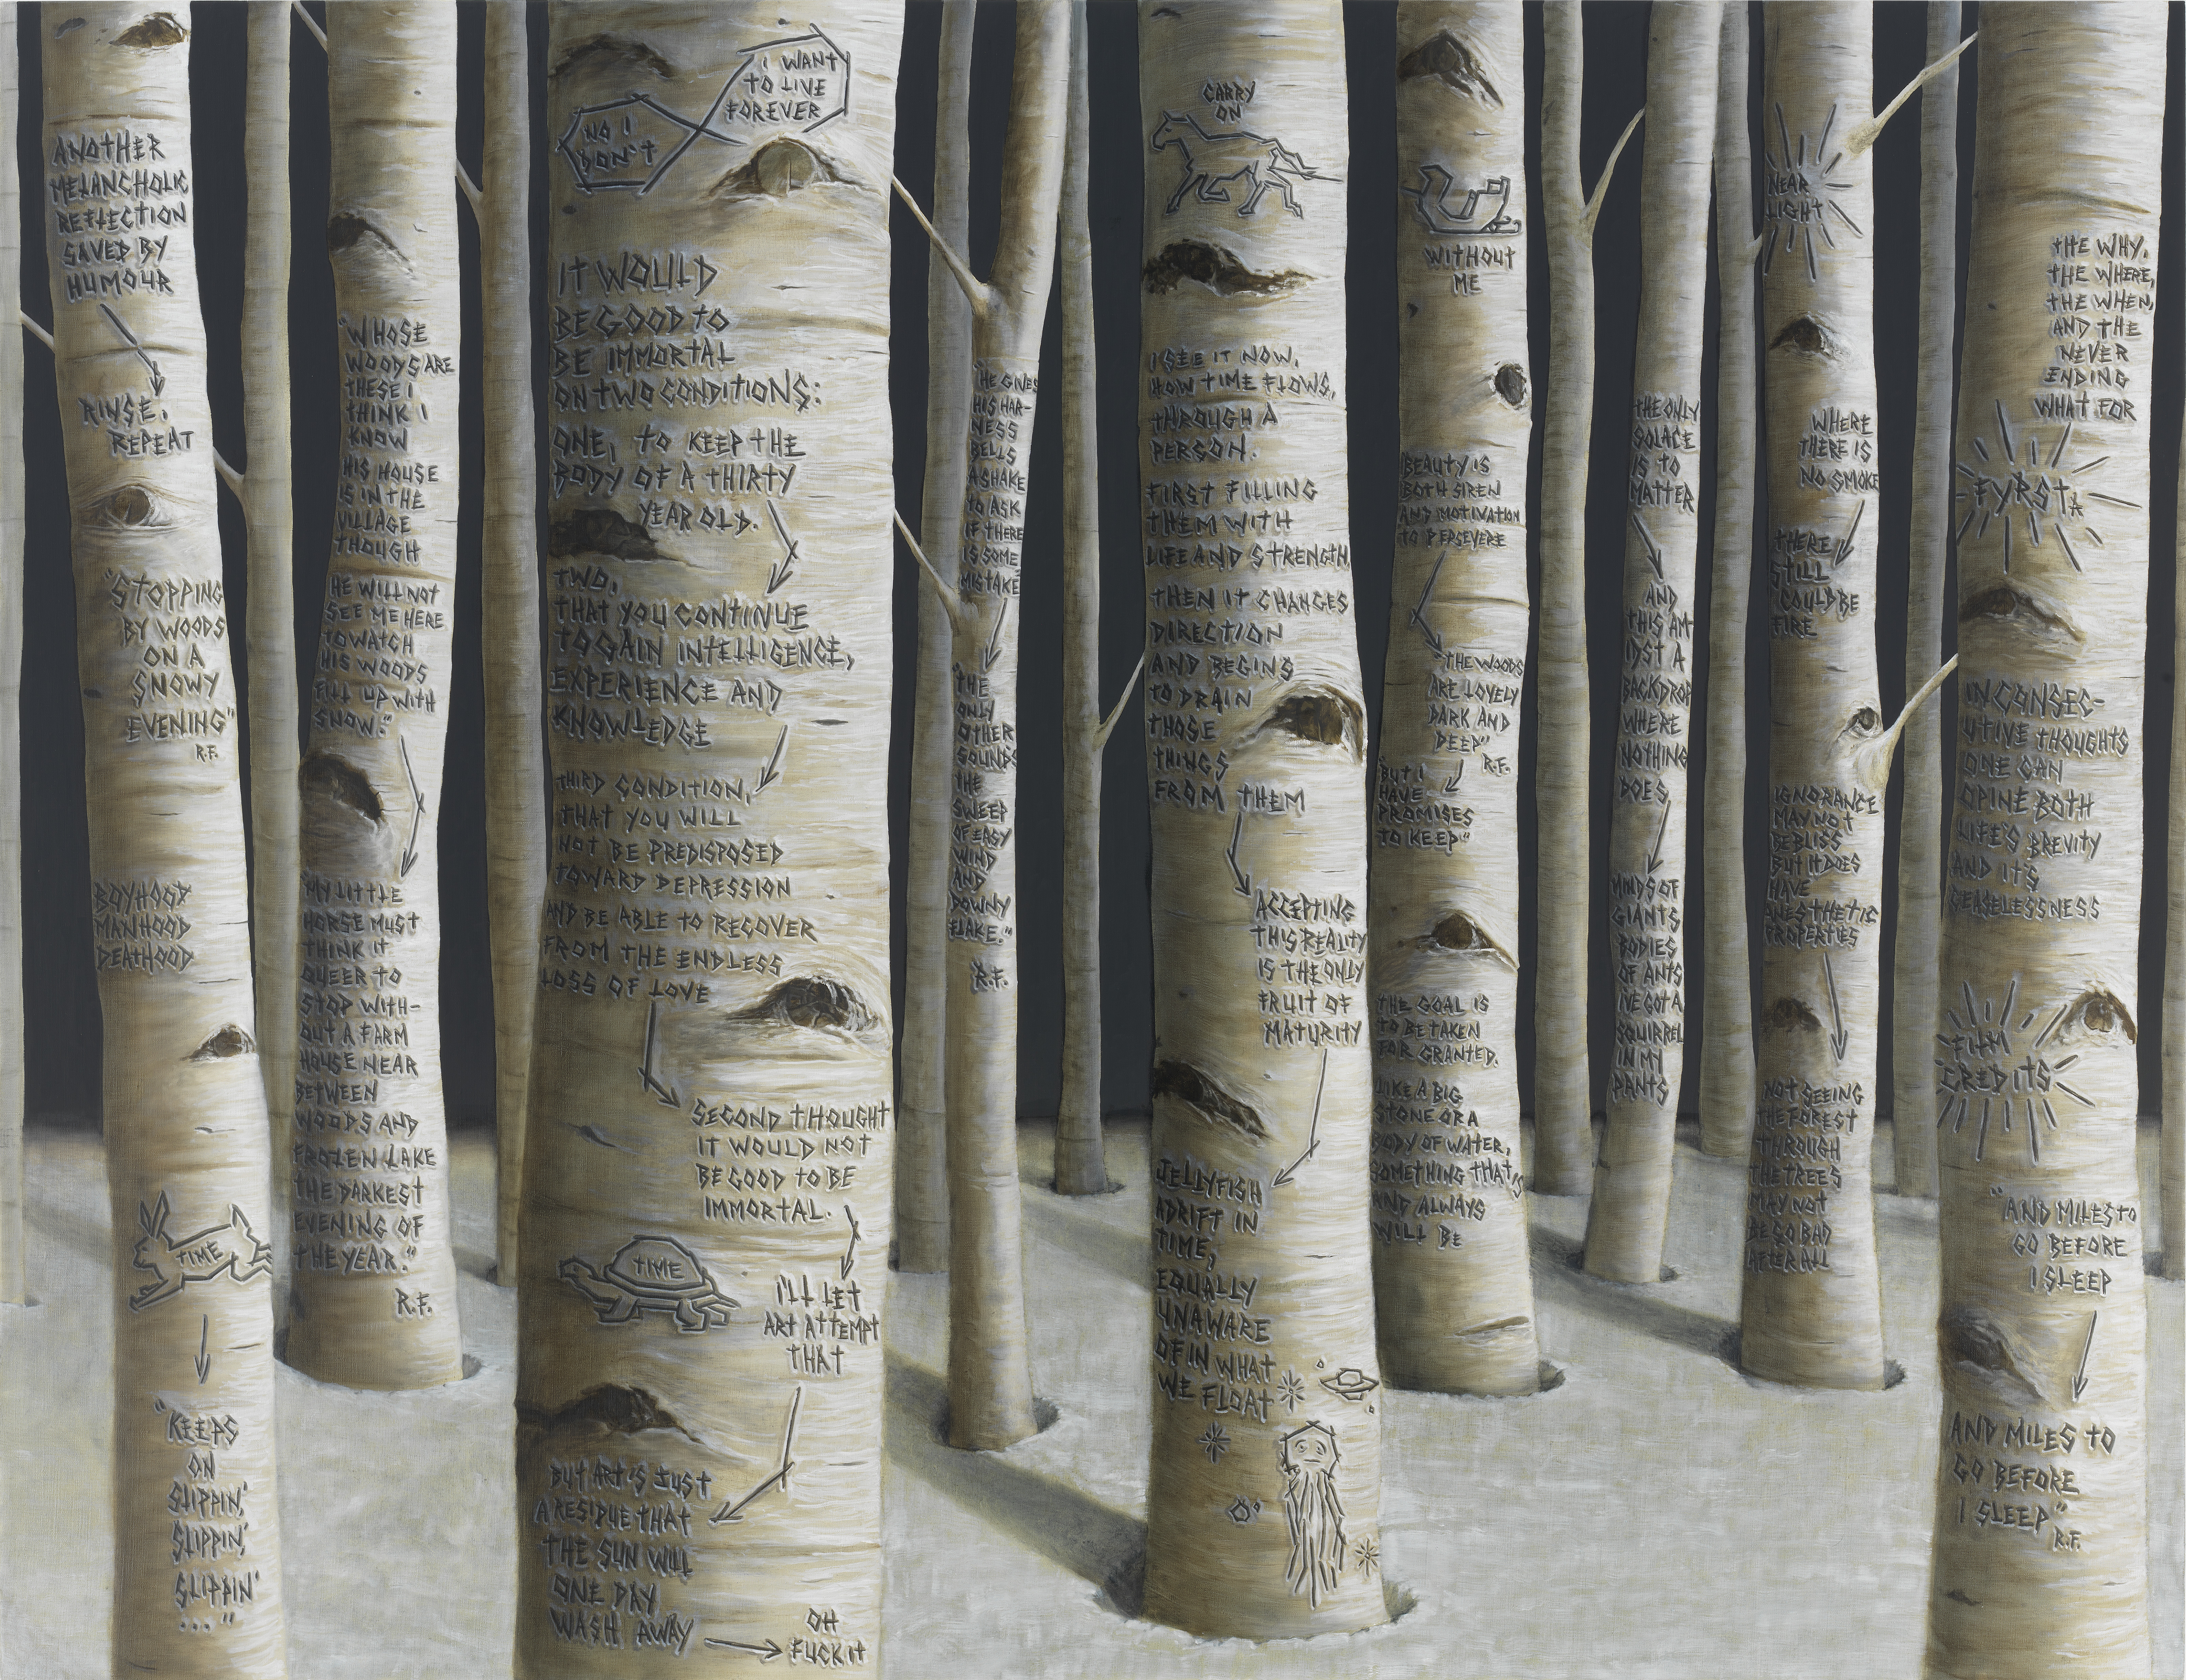 ANOTHER
MELANCHOLIC
REFLECTION
SAVED BY
HUMOUR
RINSE.
REPEAT
"STOPPING
BY WOODS
ON A
SNOWY
EVENING"
R.F.
BOYHOOD
MANHOOD
DEATHOOD
TIME
"KEEPS
ON
SLIPPIN,'
SLIPPIN,'
SLIPPIN'
..."
"WHOSE
WOODS ARE
THESE I
THINK I
KNOW
HIS HOUSE
IS IN THE
VILLAGE
THOUGH
HE WILL NOT
SEE ME HERE
TO WATCH
HIS WOODS
FILL UP WITH
SNOW."
"MY LITTLE
HORSE MUST
THINK IT
QUEER TO
STOP WITH-
OUT A FARM
HOUSE NEAR
BETWEEN
WOODS AND
FROZEN LAKE
THE DARKEST
EVENING OF
THE YEAR."
R.F.
I WANT
TO LIVE
FOREVER
NO I
DON'T
IT WOULD
BE GOOD TO
BE IMMORTAL
ON TWO CONDITIONS:
ONE, TO KEEP THE
BODY OF A THIRTY
YEAR OLD.
TWO,
THAT YOU CONTINUE
TO GAIN INTELLIGENCE,
EXPERIENCE AND
KNOWLEDGE
THIRD CONDITION,
THAT YOU WILL
NOT BE PREDISPOSED
TOWARD DEPRESSION
AND BE ABLE TO RECOVER
FROM THE ENDLESS
LOSS OF LOVE
SECOND THOUGHT
IT WOULD NOT
BE GOOD TO BE
IMMORTAL.
TIME
I'LL LET
ART ATTEMPT
THAT
BUT ART IS JUST
A RESIDUE THAT
THE SUN WILL
ONE DAY
WASH AWAY
OH
FUCK IT
"HE GIVES
HIS HAR-
NESS
BELLS
A SHAKE
TO ASK
IF THERE
IS SOME
MISTAKE"
"THE
ONLY
OTHER
SOUND'S
THE
SWEEP
OF EASY
WIND
AND
DOWNY
FLAKE."
R.F.
CARRY
ON
I SEE IT NOW,
HOW TIME FLOWS,
THROUGH A
PERSON.
FIRST FILLING
THEM WITH
LIFE AND STRENGTH
THEN IT CHANGES
DIRECTION
AND BEGINS
TO DRAIN
THOSE
THINGS
FROM THEM
ACCEPTING
THIS REALITY
IS THE ONLY
FRUIT OF
MATURITY
JELLYFISH
ADRIFT IN
TIME,
EQUALLY
UNAWARE
OF IN WHAT
WE FLOAT
WITHOUT
ME
BEAUTY IS
BOTH SIREN
AND MOTIVATION
TO PERSEVERE
"THE WOODS
ARE LOVELY
DARK AND
DEEP"
R.F.
"BUT I
HAVE
PROMISES
TO KEEP"
THE GOAL IS
TO BE TAKEN
FOR GRANTED.
LIKE A BIG
STONE OR A
BODY OF WATER,
SOMETHING THAT'S
AND ALWAYS
WILL BE
THE ONLY
SOLACE
IS TO
MATTER
AND
THIS AM-
IDST A
BACKDROP
WHERE
NOTHING
DOES
MINDS OF
GIANTS
BODIES
OF ANTS
I'VE GOT A
SQUIRREL
IN MY
PANTS
NEAR
LIGHT
WHERE
THERE IS
NO SMOKE
THERE
STILL
COULD BE
FIRE
IGNORANCE
MAY NOT
BE BLISS
BUT IT DOES
HAVE
ANESTHETIC
PROPERTIES
NOT SEEING
THE FOREST
THROUGH
THE TREES
MAY NOT
BE SO BAD
AFTER ALL
THE WHY,
THE WHERE,
THE WHEN,
AND THE
NEVER
ENDING
WHAT FOR
FYRSTA
IN CONSEC-
UTIVE THOUGHTS
ONE CAN
OPINE BOTH
LIFE'S BREVITY
AND IT'S
CEASELESSNESS
FILM
CREDITS
"AND MILES TO
GO BEFORE
I SLEEP
AND MILES TO
GO BEFORE
I SLEEP"
R.F.